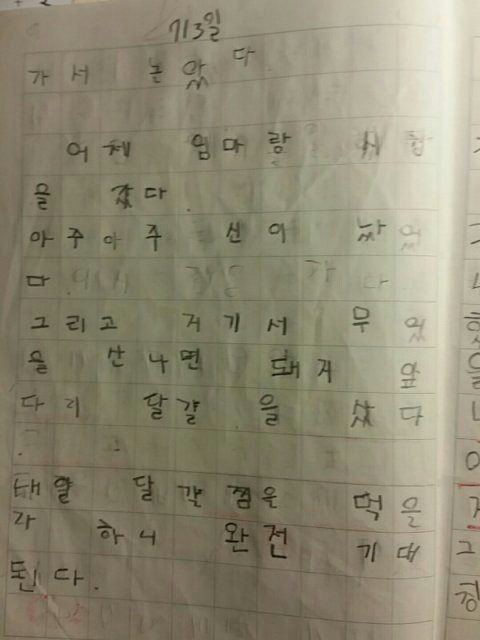 7/3일
가서 논았다
어제 엄마랑 시합
을 갔다.
아주아주 신이 났었
다
그리고 거기서 무엇
을 산나면 돼지 앞
다리 달걀을 샀다
.
내일 달걀찜은 먹을
라 하니 완전 기대
된다.